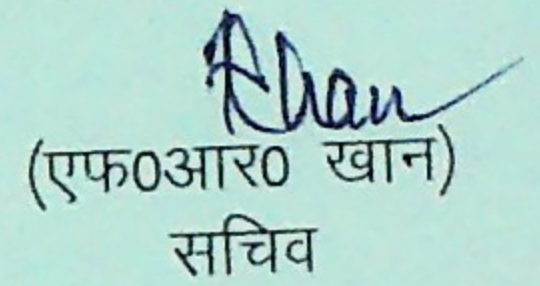 Khan
(एफ0आर0 खान)
सचिव